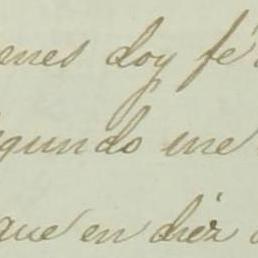 anes doy fé
egundo me
que en diez